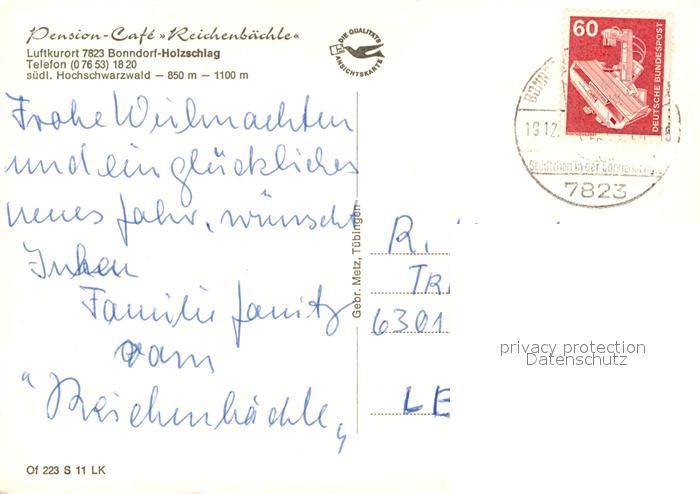 Pension-Café »Reichenbächle«
Luftkurort 7823 Bonndorf-Holzschlag
Telefon (0 76 53) 18 20
südl. Hochschwarzwald — 850 m — 1100 m
DIE QUALITÄTS
ANSICHTSKARTE
60
DEUTSCHE BUNDESPOST
BONN
19.12.
Städtchen in der
7823
Frohe Weihnachten
und ein glückliches
neues Jahr, wünscht
Ihnen
Familie Janitz
vom
"Reichenbächle"
Gebr. Metz, Tübingen
R.
TR
6301
LE
privacy protection
Datenschutz
Of 223 S 11 LK